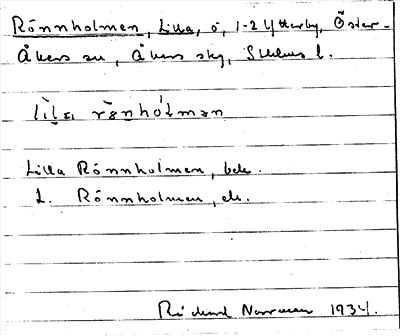 Rönnholmen, Lilla, ö, 1-2 Ytterby, Öster-
Åkers sn, Åkers skg, Sthlms l.
lìla rönhól̀mən
Lilla Rönnholmen, bek.
L. Rönnholmen, ek.
Rickard Norrman 1934.